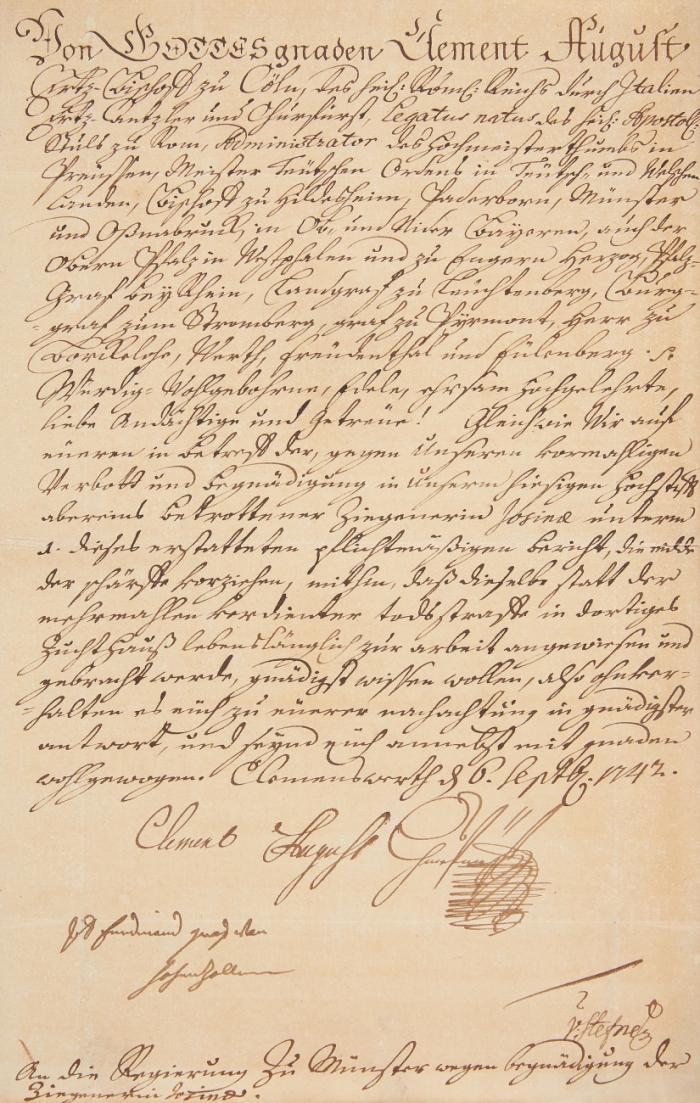 Von GOTTES gnaden Clement August
Ertz-Bischoff zu Cöln, des heil: Röm: Reichs durch Italien
Ertz-Cantzler und Churfürst, Legatus natus des heil: Apostol:
Stuls zu Rom, Administrator des Hochmeisterthumbs in
Preussen, Meister Teutschen Ordens in Teutsch- und Welschen
Landen, Bischoff zu Hildesheim, Paderborn, Münster
und Oßnabruck, in Ob- und Nider Bayeren, auch der
Obern Pfaltz in Westphalen und zu Engern Hertzog, Pfaltz-
Graf bey Rhein, Landgraf zu Leuchtenberg, Burg-
=graf zum Stromberg, graf zu Pyrmont, Herr zu
Borckelohe, Werth, Freudenthal und Eulenberg p.
Würdig- Wohlgebohrne, Edele, ehrsam Hochgelehrte,
liebe Andächtige und Getreue! Gleich wie Wir auß
eueren in betreff der, gegen Unseren vormahligen
Verbott und begnädigung in Unserm hiesigen Hochstifft
abereins betrottener Ziegenerin Josinæ unterm
1. dieses erstatteten pflichtmäßigen bericht, die
der schärffe vorziehen, mithin, daß dieselbe statt der
mehrmahlen verdienter todsstraffe in dortiges
Zuchthauß lebenslänglich zur arbeit angewiesen und
gebracht werde, gnädigst wissen wollen, also ohnver-
=halten es euch zu euerer nachachtung in gnädigster
antwort, und seynd euch annebst mit gnaden
wohlgewogen. Clemenswerth d 6. Septb. 1742.
Clement August Churfürst
Ferdinand graf von
Hohenzollern
v: Stefné
An die Regierung Zu Münster wegen begnädigung der
Ziegenerin Josinæ.